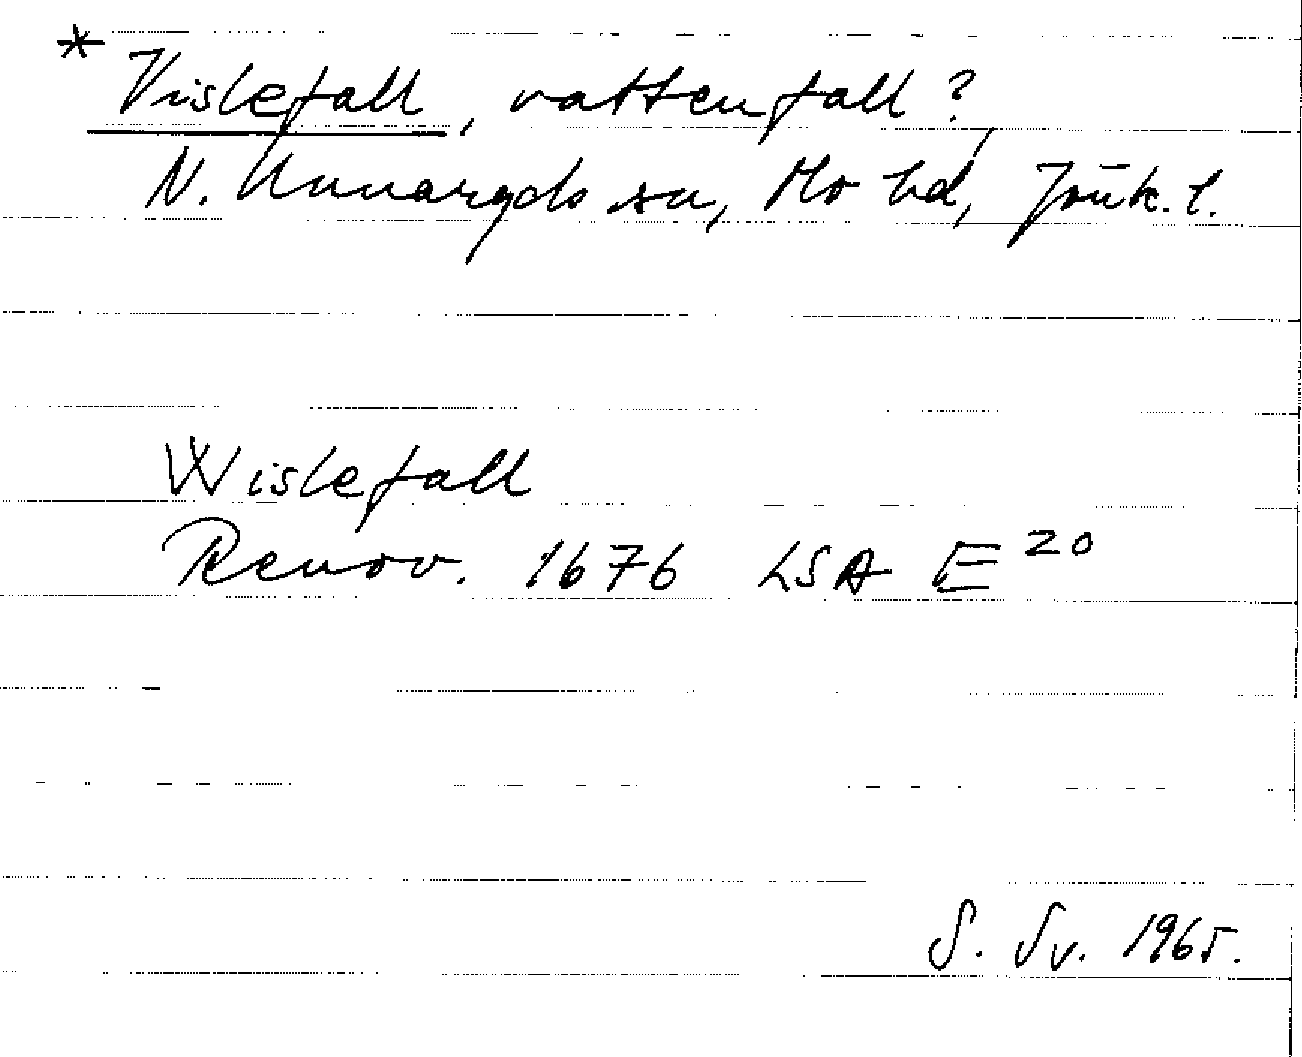 * Vislefall, vattenfall?,
N. Unnaryds sn, Mo hd, Jönk. l.
Wislefall
Renov. 1676 LSA E 20
S. Sv. 1965.